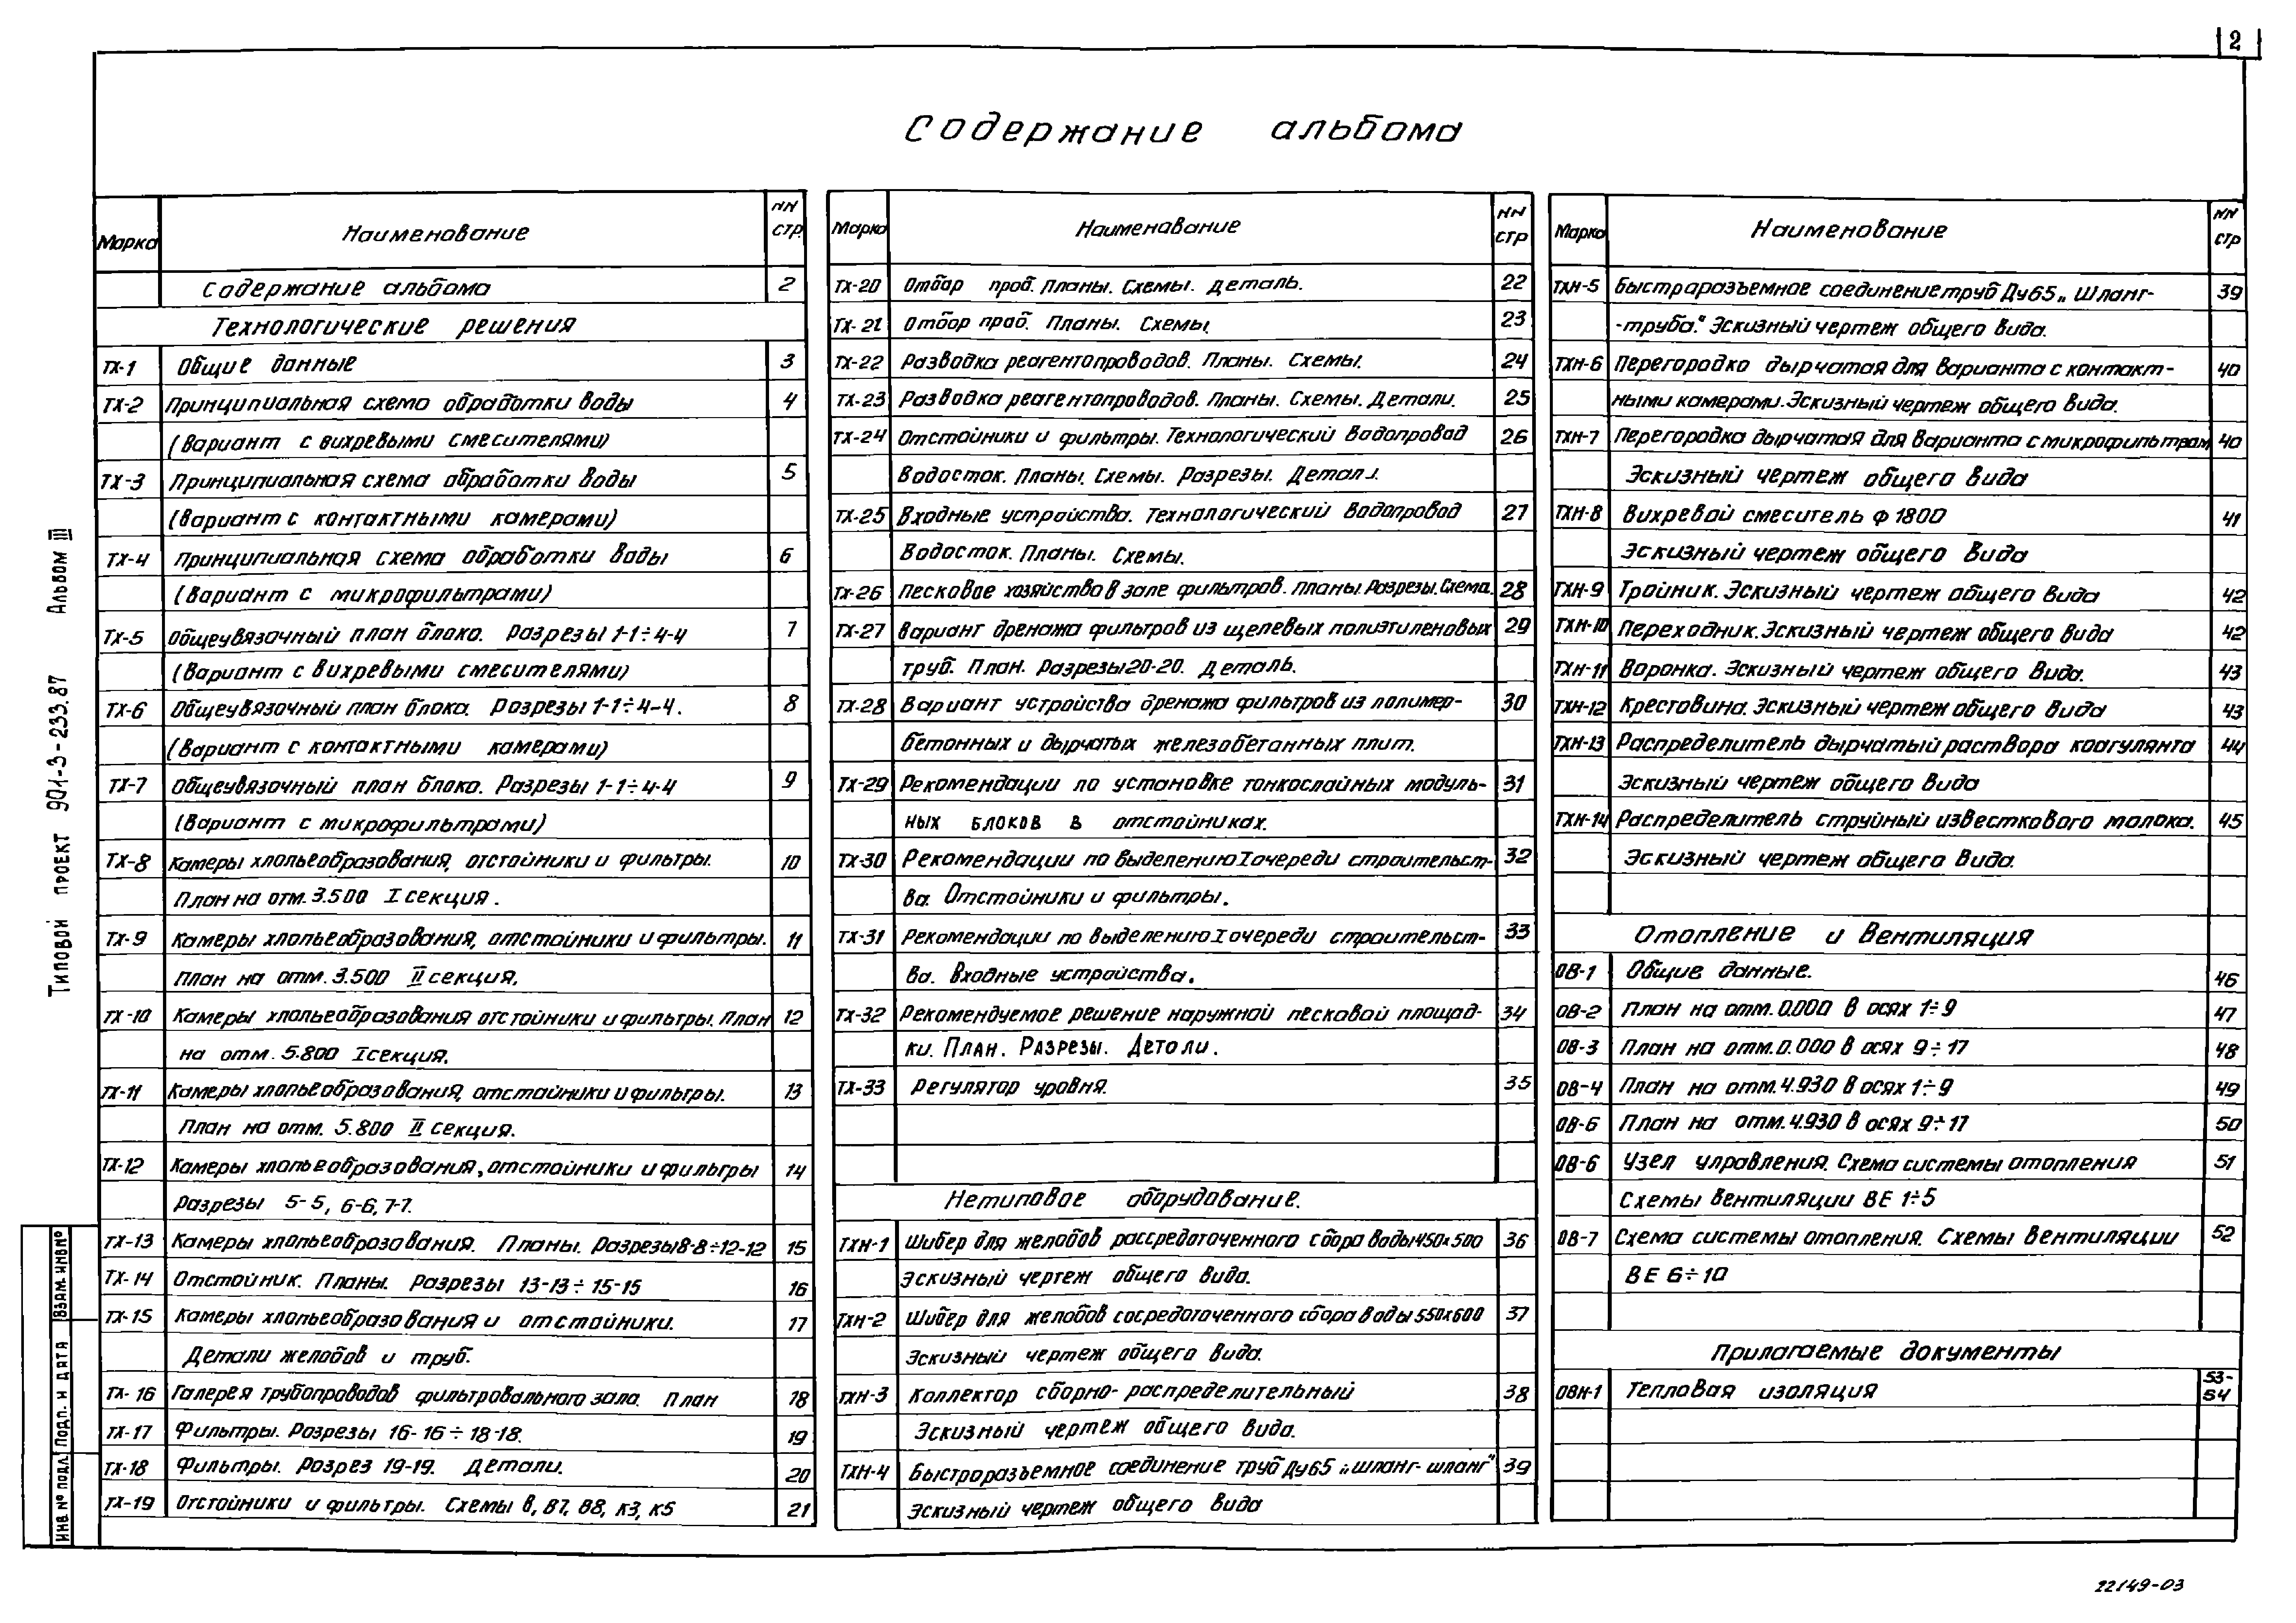 2
Содержание альбома
Марка Наименование НН стр.
Содержание альбома 2
Технологические решения
ТХ-1 Общие данные 3
ТХ-2 Принципиальная схема обработки воды 4
(Вариант с вихревыми смесителями)
ТХ-3 Принципиальная схема обработки воды 5
(Вариант с контактными камерами)
ТХ-4 Принципиальная схема обработки воды 6
(Вариант с микрофильтрами)
ТХ-5 Общеувязочный план блока. Разрезы 1-1÷4-4 7
(Вариант с вихревыми смесителями)
ТХ-6 Общеувязочный план блока. Разрезы 1-1÷4-4. 8
(Вариант с контактными камерами)
ТХ-7 Общеувязочный план блока. Разрезы 1-1÷4-4 9
(Вариант с микрофильтрами)
ТХ-8 Камеры хлопьеобразования, отстойники и фильтры. 10
План на отм. 3.500 I секция.
ТХ-9 Камеры хлопьеобразования, отстойники и фильтры. 11
План на отм. 3.500 II секция.
ТХ-10 Камеры хлопьеобразования отстойники и фильтры. План 12
на отм. 5.800 I секция.
ТХ-11 Камеры хлопьеобразования, отстойники и фильтры. 13
План на отм. 5.800 II секция.
ТХ-12 Камеры хлопьеобразования, отстойники и фильтры 14
Разрезы 5-5, 6-6, 7-7.
ТХ-13 Камеры хлопьеобразования. Планы. Разрезы 8-8÷12-12 15
ТХ-14 Отстойник. Планы. Разрезы 13-13÷15-15 16
ТХ-15 Камеры хлопьеобразования и отстойники. 17
Детали желобов и труб.
ТХ-16 Галерея трубопроводов фильтровального зала. План 18
ТХ-17 Фильтры. Разрезы 16-16÷18-18. 19
ТХ-18 Фильтры. Разрез 19-19. Детали. 20
ТХ-19 Отстойники и фильтры. Схемы В, В7, В8, К3, К5 21
Марка Наименование НН стр
ТХ-20 Отбор проб. Планы. Схемы. Деталь. 22
ТХ-21 Отбор проб. Планы. Схемы. 23
ТХ-22 Разводка реагентопроводов. Планы. Схемы. 24
ТХ-23 Разводка реагентопроводов. Планы. Схемы. Детали. 25
ТХ-24 Отстойники и фильтры. Технологический водопровод 26
Водосток. Планы. Схемы. Разрезы.
ТХ-25 Входные устройства. Технологический водопровод 27
Водосток. Планы. Схемы.
ТХ-26 Песковое хозяйство в зале фильтров. Планы. Разрезы. Схема. 28
ТХ-27 Вариант дренажа фильтров из щелевых полиэтиленовых 29
труб. План. Разрезы 20-20. Деталь.
ТХ-28 Вариант устройства дренажа фильтров из полимер- 30
бетонных и дырчатых железобетонных плит.
ТХ-29 Рекомендации по установке тонкослойных модуль- 31
ных блоков в отстойниках.
ТХ-30 Рекомендации по выделению I очереди строительст- 32
ва. Отстойники и фильтры.
ТХ-31 Рекомендации по выделению I очереди строительст- 33
ва. Входные устройства.
ТХ-32 Рекомендуемое решение наружной песковой площад- 34
ки. План. Разрезы. Детали.
ТХ-33 Регулятор уровня. 35
Нетиповое оборудование.
ТХН-1 Шибер для желобов рассредоточенного сбора воды 450х500 36
Эскизный чертеж общего вида.
ТХН-2 Шибер для желобов сосредоточенного сбора воды 550х600 37
Эскизный чертеж общего вида.
ТХН-3 Коллектор сборно-распределительный 38
Эскизный чертеж общего вида.
ТХН-4 Быстроразъемное соединение труб Ду65 „шланг-шланг" 39
Эскизный чертеж общего вида
Марка Наименование НН стр
ТХН-5 Быстраразъемное соединение труб Ду65 „Шланг- 39
-труба." Эскизный чертеж общего вида.
ТХН-6 Перегородка дырчатая для варианта с контакт- 40
ными камерами. Эскизный чертеж общего вида.
ТХН-7 Перегородка дырчатая для варианта с микрофильтрам 40
Эскизный чертеж общего вида
ТХН-8 Вихревой смеситель ф 1800 41
Эскизный чертеж общего вида
ТХН-9 Тройник. Эскизный чертеж общего вида 42
ТХН-10 Переходник. Эскизный чертеж общего вида 42
ТХН-11 Воронка. Эскизный чертеж общего вида. 43
ТХН-12 Крестовина. Эскизный чертеж общего вида 43
ТХН-13 Распределитель дырчатый раствора коагулянта 44
Эскизный чертеж общего вида
ТХН-14 Распределитель струйный известкового молока. 45
Эскизный чертеж общего вида.
Отопление и вентиляция
ОВ-1 Общие данные. 46
ОВ-2 План на отм. 0.000 в осях 1÷9 47
ОВ-3 План на отм. 0.000 в осях 9÷17 48
ОВ-4 План на отм. 4.930 в осях 1÷9 49
ОВ-6 План на отм. 4.930 в осях 9÷17 50
ОВ-6 Узел управления. Схема системы отопления 51
Схемы вентиляции ВЕ 1÷5
ОВ-7 Схема системы отопления. Схемы вентиляции 52
ВЕ 6÷10
Прилагаемые документы
ОВН-1 Тепловая изоляция 53-54
Типовой проект 901-3-233.87 Альбом III
Инв № подл. Подп. и дата Взам. инв №
22149-03